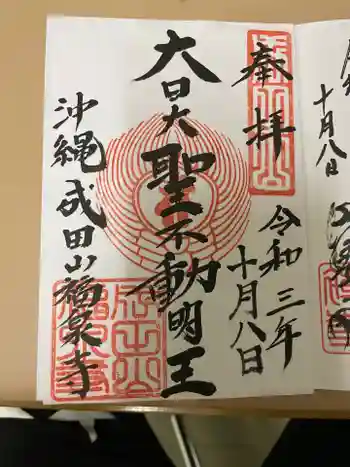 奉拝
令和三年
十月八日
大日大
聖不動明王
沖縄成田山福泉寺
十月八日